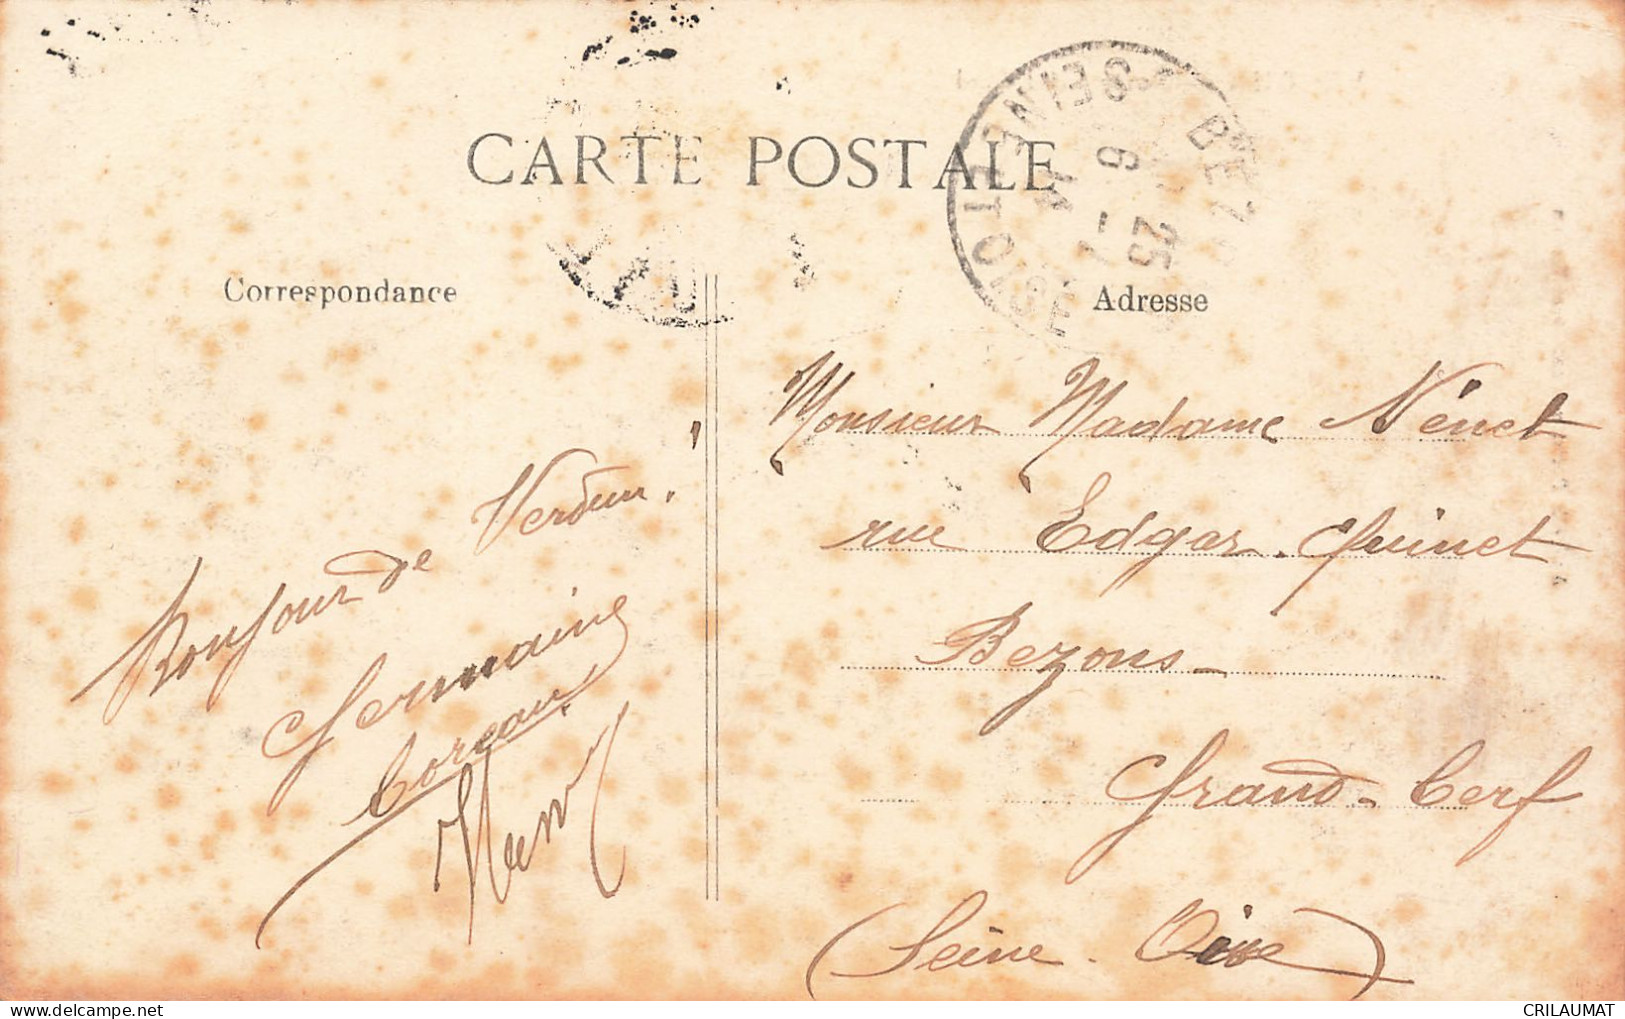 CARTE POSTALE
Correspondance
Adresse
BEZ
SEINE ET OISE
6
25 - 7
14
Bonjour de Verdun !
Germaine
Coreau.
Henry
Monsieur Madame Nénet
rue Edgar. Quinet
Bezons -
Grand-Cerf
(Seine. Oise)
CRILAUMAT